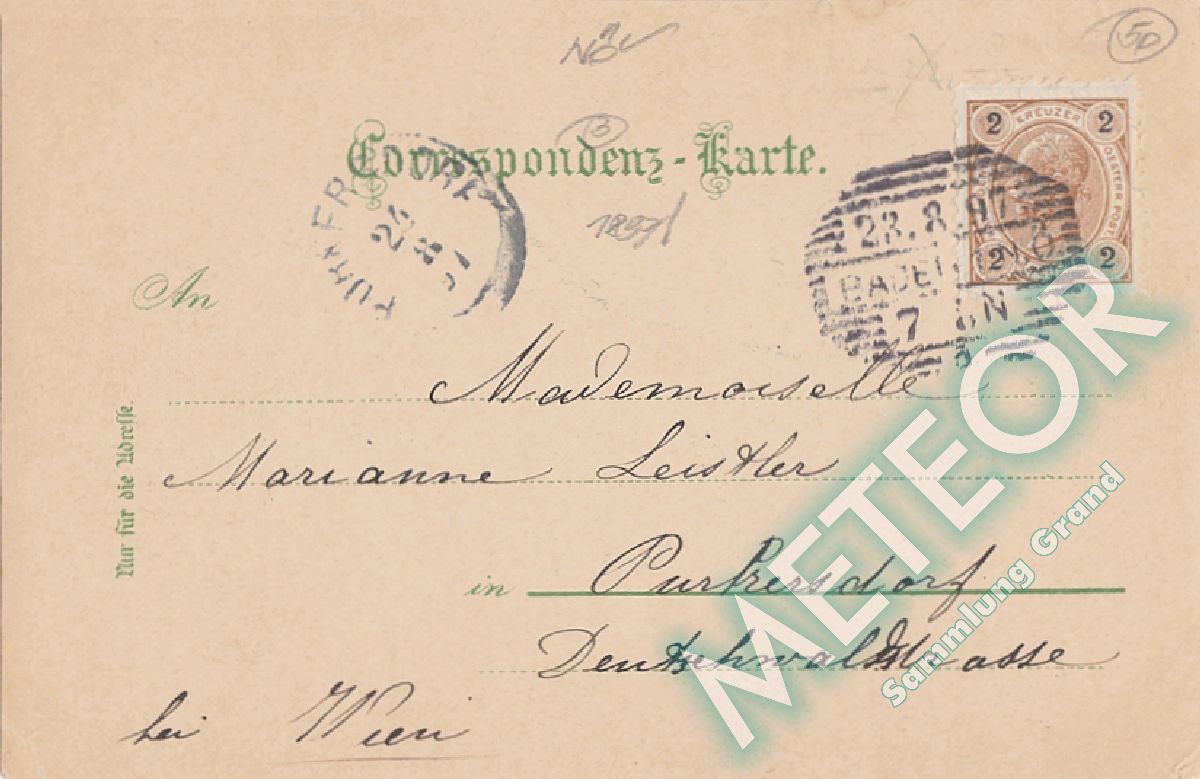 50
Correspondenz-Karte.
3
1897
2 KREUZER 2
2 2
23.8.97
BADEN
7 N
24
8
97
An
Mademoiselle
Marianne Leistler
Nur für die Adresse.
in Purkersdorf
Deutschwaldstrasse
bei Wien
METEOR
Sammlung Grand